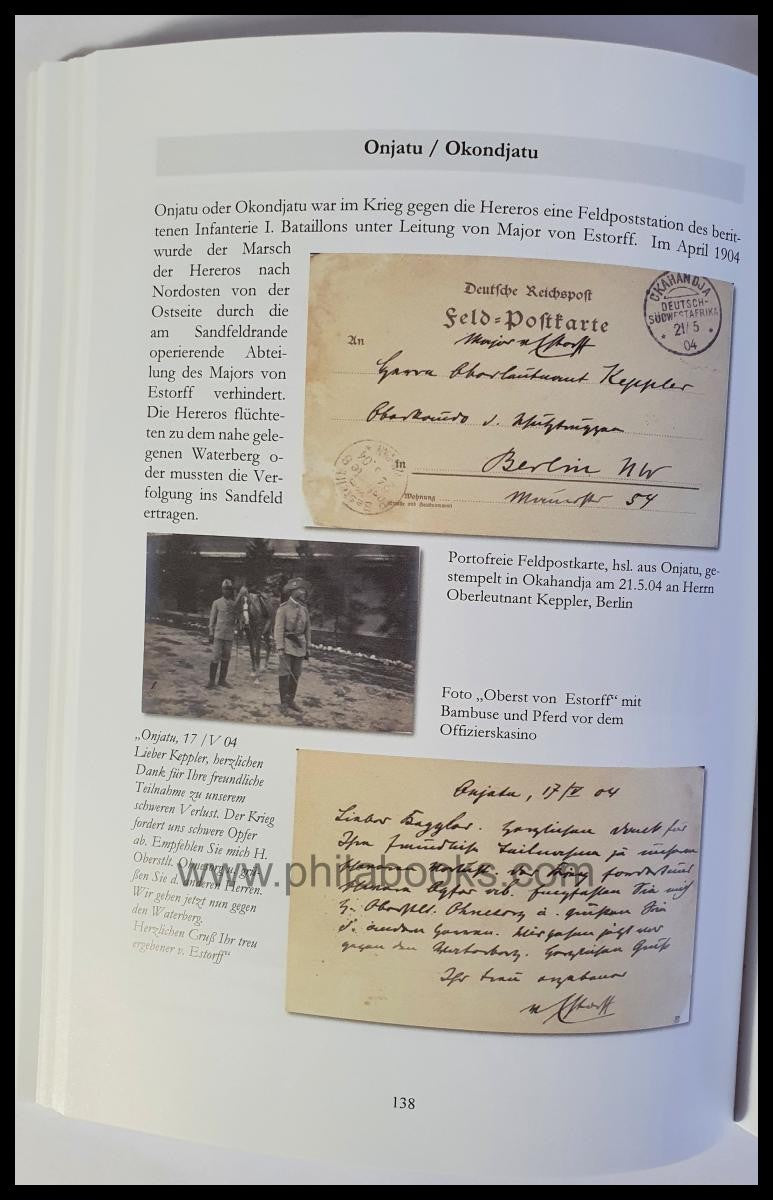 Onjatu / Okondjatu
Onjatu oder Okondjatu war im Krieg gegen die Hereros eine Feldpoststation des berit-
tenen Infanterie I. Bataillons unter Leitung von Major von Estorff. Im April 1904
wurde der Marsch
der Hereros nach
Nordosten von der
Ostseite durch die
am Sandfeldrande
operierende Abtei-
lung des Majors von
Estorff verhindert.
Die Hereros flüchte-
ten zu dem nahe gele-
genen Waterberg o-
der mussten die Ver-
folgung ins Sandfeld
ertragen.
Deutsche Reichspost
Feld=Postkarte
OKAHANDJA
DEUTSCH-
SÜDWESTAFRIKA
21/5
04
An
Major v Estorff
Herrn Oberleutnant Keppler
Oberkomdo d. Schutztruppen
in
Berlin NW
Wohnung
54
Portofreie Feldpostkarte, hsl. aus Onjatu, ge-
stempelt in Okahandja am 21.5.04 an Herrn
Oberleutnant Keppler, Berlin
Foto „Oberst von Estorff“ mit
Bambuse und Pferd vor dem
Offizierskasino
„Onjatu, 17 /V 04
Lieber Keppler, herzlichen
Dank für Ihre freundliche
Teilnahme zu unserem
schweren Verlust. Der Krieg
fordert uns schwere Opfer
ab. Empfehlen Sie mich H.
Oberstlt. Ohnesorg u. grü-
ßen Sie d. anderen Herren.
Wir gehen jetzt nun gegen
den Waterberg.
Herzlichen Gruß Ihr treu
ergebener v. Estorff“
Onjatu, 17/V 04
Lieber Keppler. Herzlichen Dank für
Ihre freundliche Teilnahme zu unserem
schweren Verlust. Der Krieg fordert uns
schwere Opfer ab. Empfehlen Sie mich
H. Oberstlt. Ohnesorg u. grüßen Sie
d. anderen Herren. Wir gehen jetzt nun
gegen den Waterberg. Herzlichen Gruß
Ihr treu ergebener
v Estorff
www.philabooks.com
138